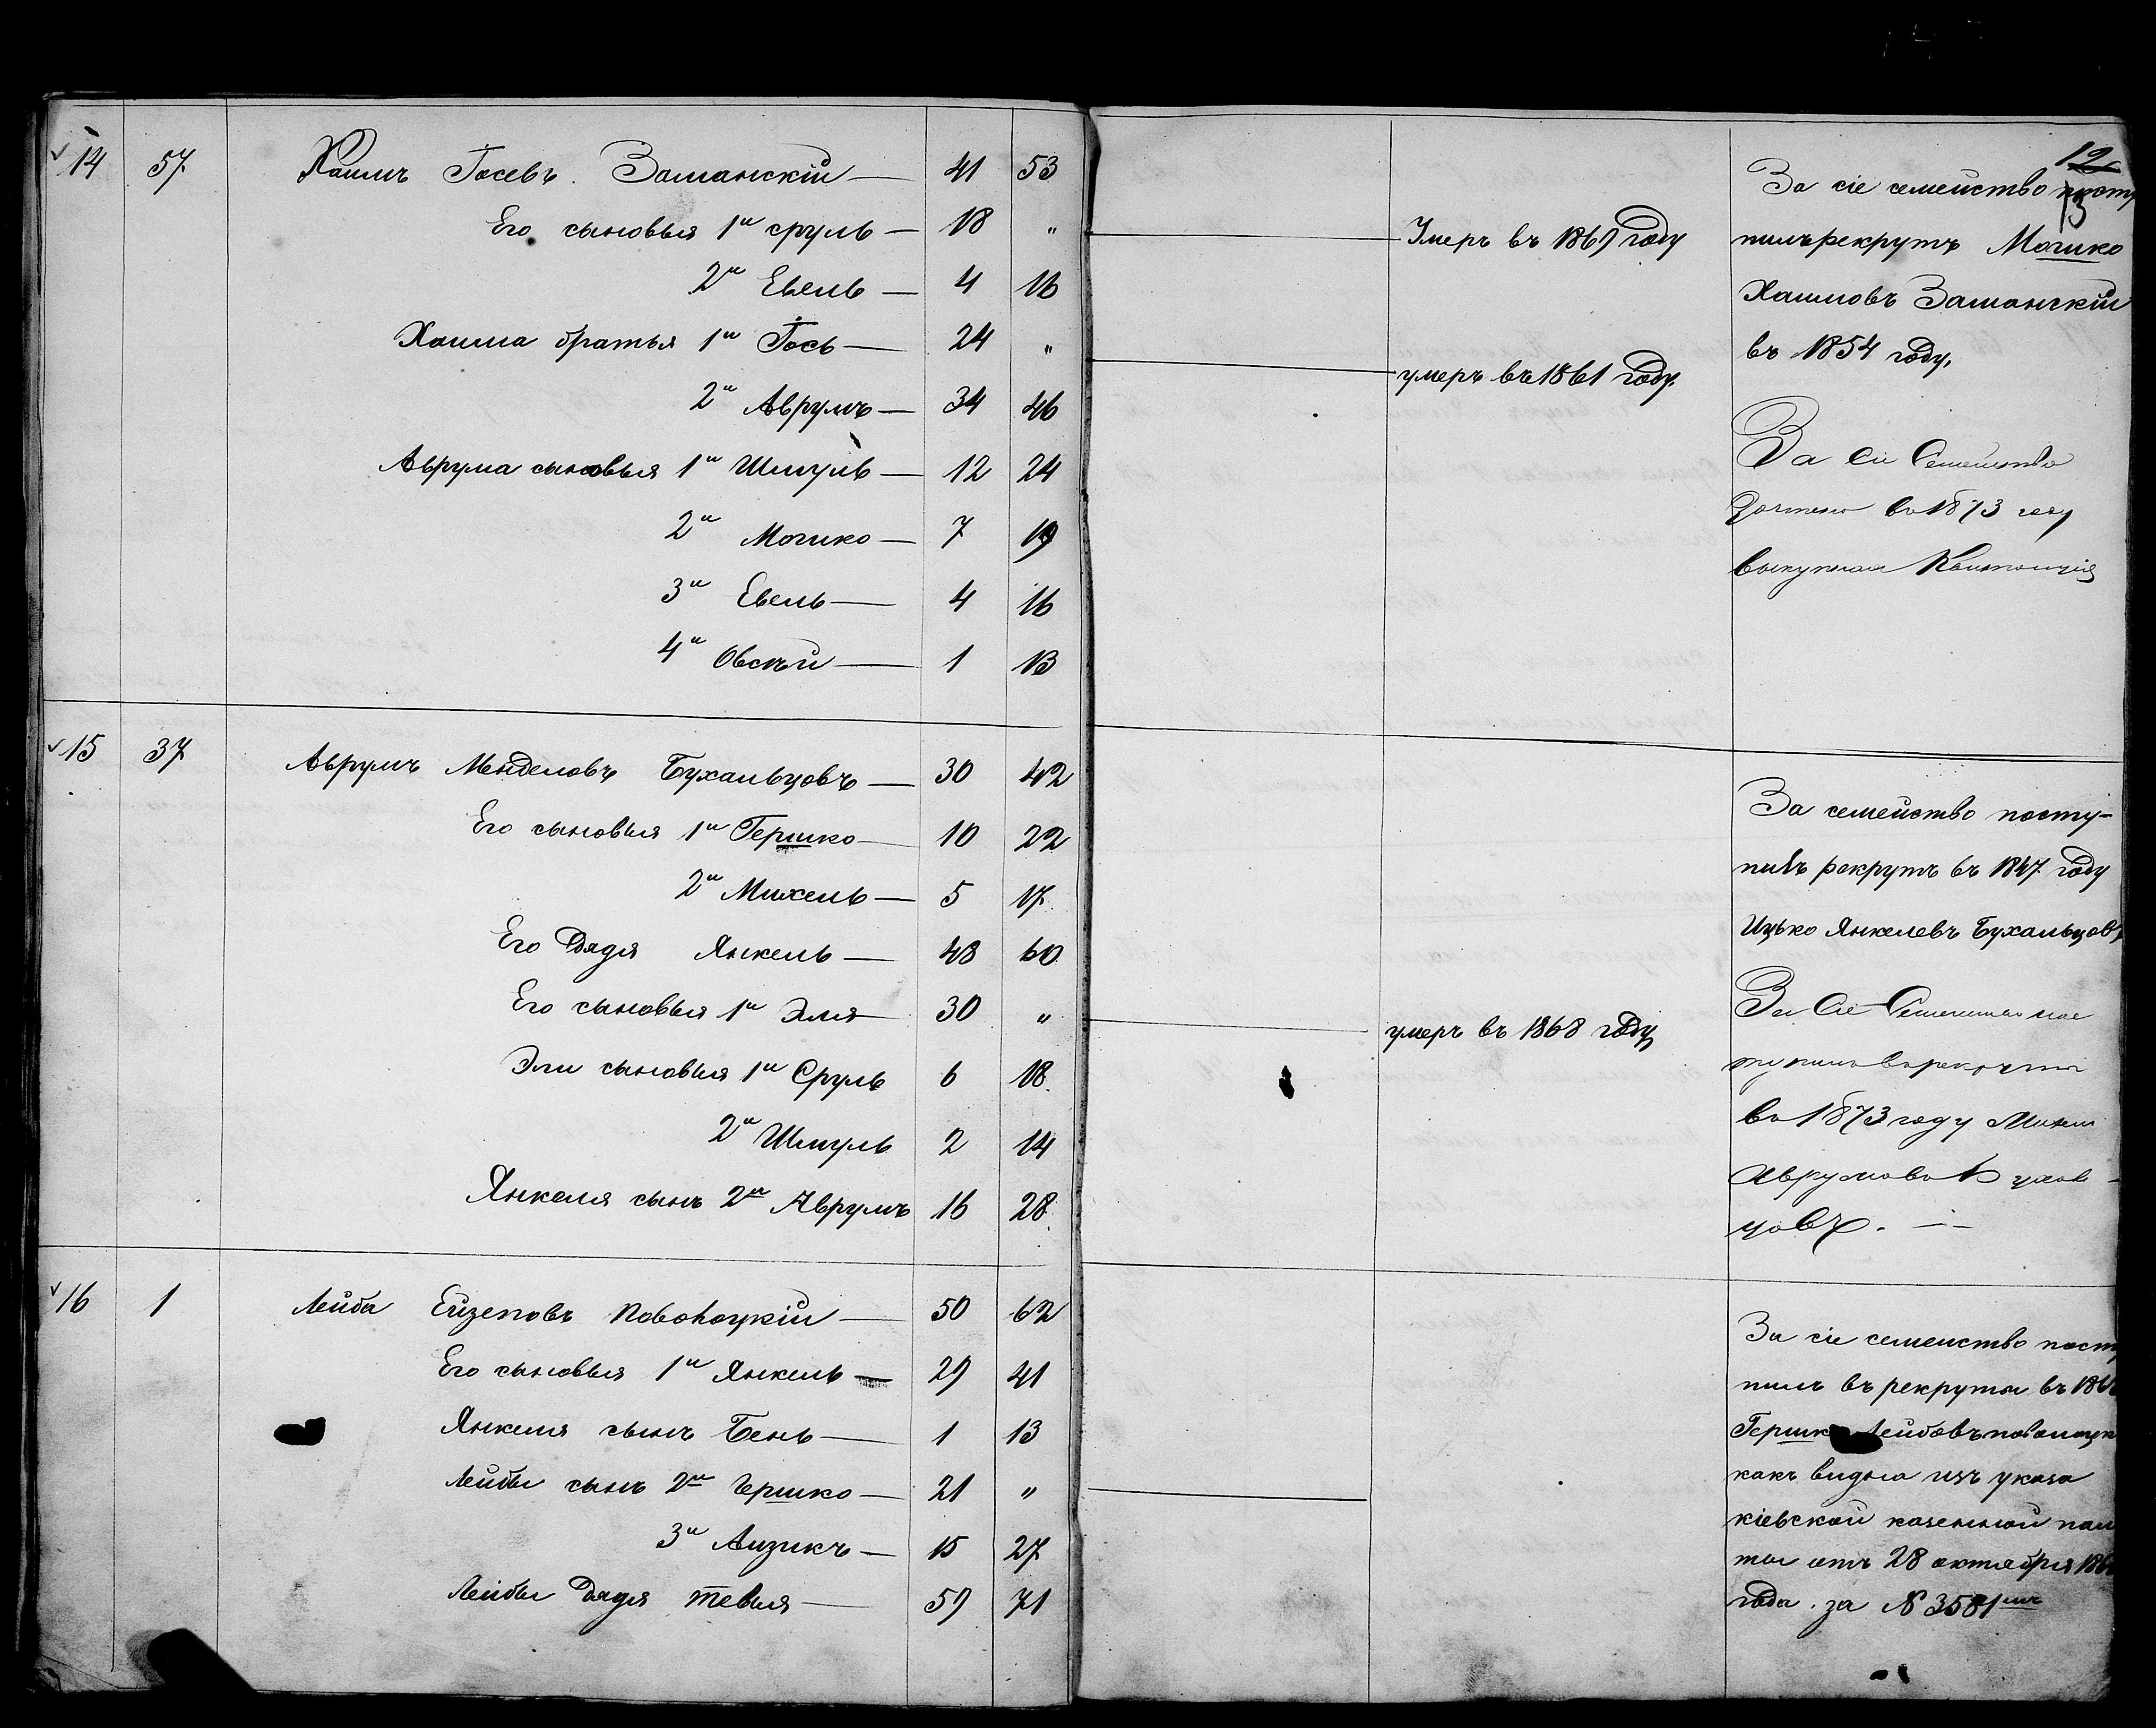 14 57 Хаимъ Іосевъ Заманскій — 41 53
Его сыновья 1й сруль — 18 "
2й Евель — 4 16
Хаима братья 1й Іось — 24 "
2й Аврумъ — 34 46
Аврума сыновья 1й Шмуль — 12 24
2й Мошко — 7 19
3й Евель — 4 16
4й Овсѣй — 1 13
15 37 Аврумъ Менделовъ Бухальцовъ — 30 42
Его сыновья 1й Гершко — 10 22
2й Михель — 5 17
Его Дядя Янкель — 48 60
Его сыновья 1й Эля 30 "
Эли сыновья 1й Сруль 6 18
2й Шмуль 2 14
Янкеля сынъ 2й Аврумъ 16 28
16 1 Лейба Ейзеповъ Поволоцкій — 50 62
Его сыновья 1й Янкель — 29 41
Янкеля сынъ Бень — 1 13
Лейбы сынъ 2й Гершко — 21 "
3й Аизикъ — 15 27
Лейбы Дядя тевья — 59 71
12
13
Умеръ въ 1869 году
умеръ въ 1861 году.
умеръ въ 1868 году
За сіе семейство посту
пилъ рекрутъ Мошко
Хаимовъ Заманскій
въ 1854 году.
За Сіе Семейство
зачтена въ 1873 году
выкупная Квитанція
За семейство посту-
пилъ рекрутъ въ 1847 году
Ицько Янкелевъ Бухальцовъ
За Сіе Семейство пос
тупилъ въ рекруты
въ 1873 году Михель
Аврумовъ Бухаль-
цовъ. —
За сіе семейство посту
пилъ въ рекруты въ
Гершк Лейбовъ поволоцк
какъ видно изъ указа
кіевской казенной пала
ты отъ 28 октября
года за № 3581мъ